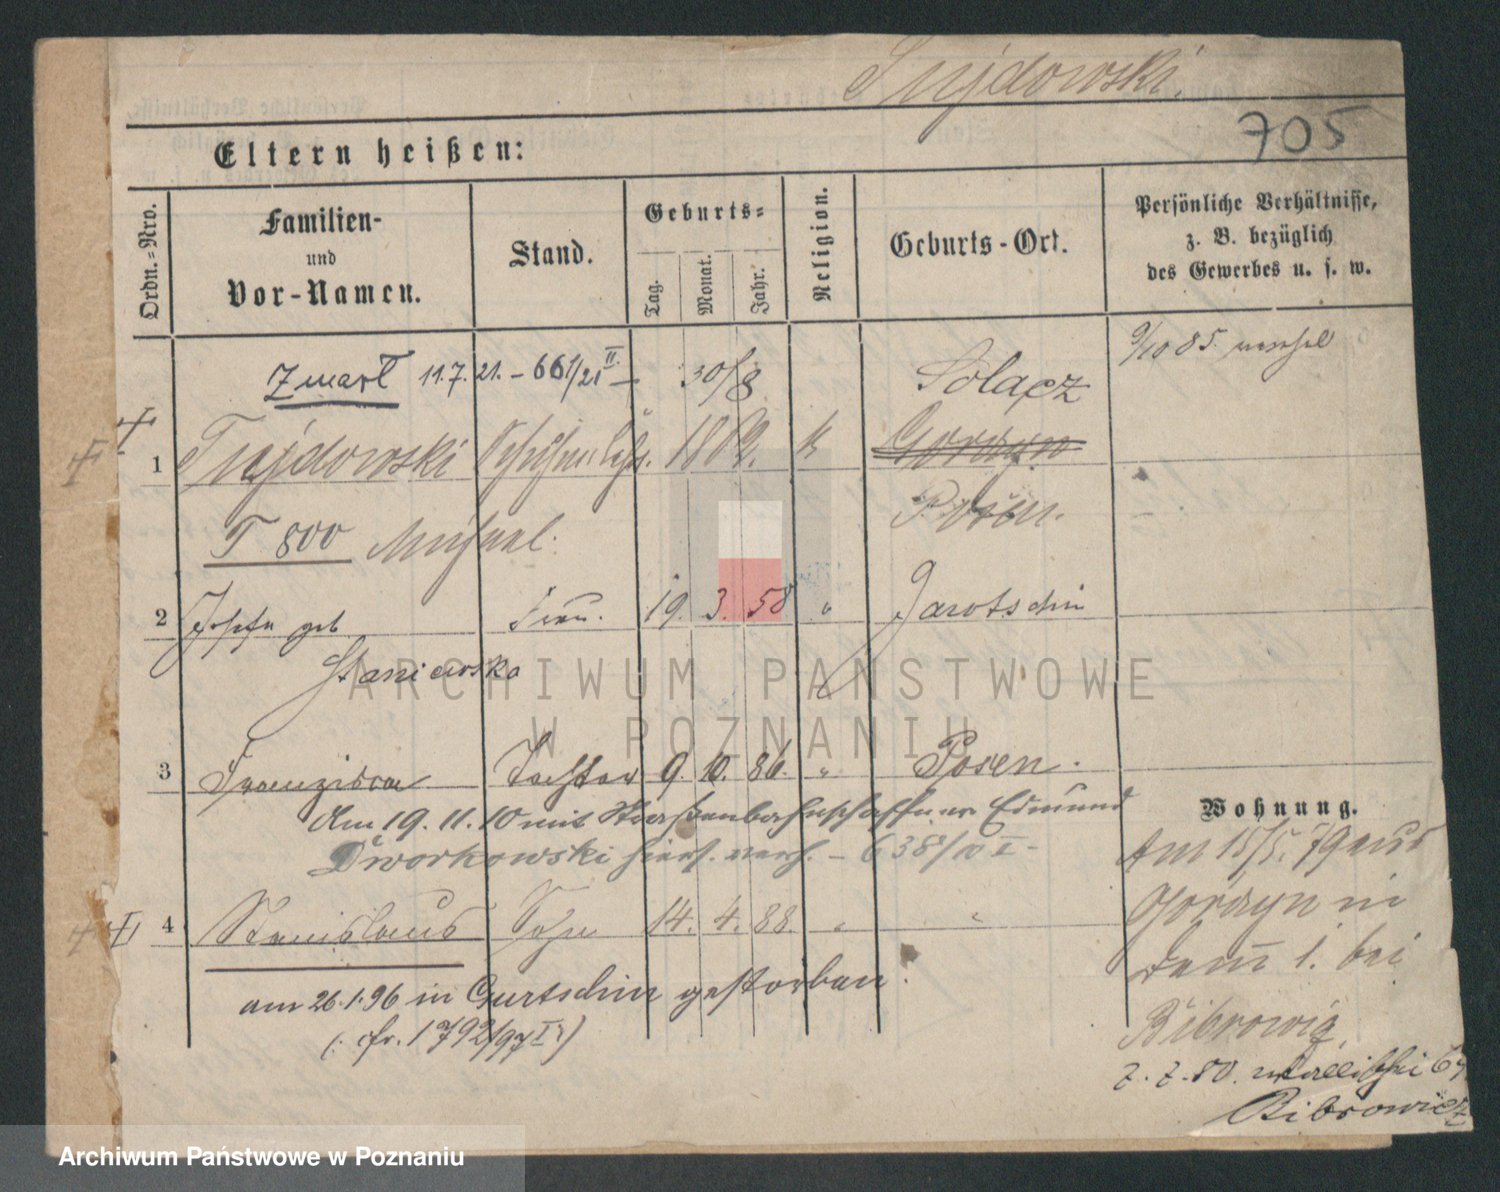 Tujdowski.
705
Eltern heißen:
Ordn.-Nro.
Familien-
und
Vor-Namen.
Stand.
Geburts-
Tag.
Monat.
Jahr.
Religion.
Geburts-Ort.
Persönliche Verhältnisse,
z. B. bezüglich
des Gewerbes u. s. w.
9/10 85.
Zmarł 11.7.21. – 661/21 II. –
30/8
Solacz
1
Tujdowski
18
k
Gorczyn
T 800
Michael.
Posen.
2
Josefa geb
Frau.
19. 3. 58
"
Jarotschin
Staniewska
3
Franziska
Tochter
9. 10. 86.
"
Posen.
Am 19. 11. 10 mit Straßenbahnschaffner Edmund
Dworkowski hiers. verh. – 638/10 I –
4
Stanislaus
Sohn
14. 4. 88.
"
"
am 26.1.96 in Gurtschin gestorben.
(: cfr. 1792/97 I :)
Wohnung.
Am 15/5. 79 aus
Gorczyn in
bei
Bibrowicz
2. 2. 80. Wallischei 64
Bibrowicz
ARCHIWUM PAŃSTWOWE
W POZNANIU
Archiwum Państwowe w Poznaniu